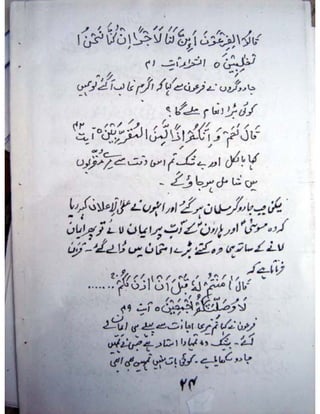 قَالُوا لِفِرْعَوْنَ أَئِنَّ لَنَا لَأَجْرًا إِنْ كُنَّا نَحْنُ ا
آیات ۴۱
جادوگروں نے فرعون سے کہا کہ اگر ہم غالب آگئے تو ہمیں
کوئی بڑا انعام ملے گا؟
قَالَ نَعَمْ وَإِنَّكُمْ إِذًا لَمِنَ الْمُقَرَّبِينَ ۵ آیت ۴۲
کہا بالکل اور بے شک تم اسی وقت سے میرے مقربوں
میں شامل ہو جاؤ گے۔
لیکن جب جادوگر مسلمان ہو گئے اور انہوں نے علی الاعلان کہہ دیا
کہ وہ موسیٰ اور ہارون کے رب پر ایمان لائے تو پھر ایمان
لانے کے ساتھ ہی وہ کتنے بڑے امتحان میں ڈالے گئے۔ قرآن
فرماتا ہے کہ
قَالَ آمَنْتُمْ لَهُ قَبْلَ أَنْ آذَنَ لَكُمْ ......
أَجْمَعِينَ ۵ آیت ۴۹
فرعون نے کہا تم میری اجازت سے پہلے ہی ایمان لے
آئے۔ بیشک وہ تمہارا استاد ہے جس نے تمہیں
جادو سکھایا ہے۔ کوئی بات نہیں تمہیں ابھی ابھی
۲۴